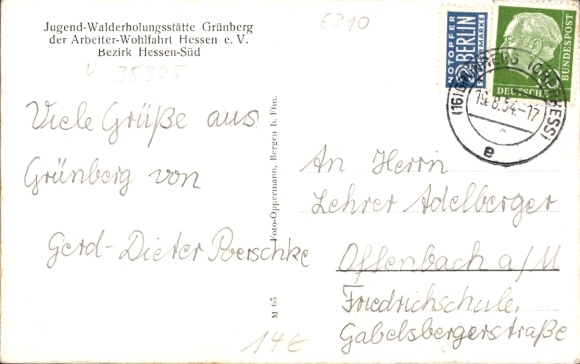 Jugend-Walderholungsstätte Grünberg
der Arbeiter-Wohlfahrt Hessen e. V.
Bezirk Hessen-Süd
6310
35325
Viele Grüße aus
Grünberg von
Gerd-Dieter Poerschke
Foto-Oppermann, Bergen b. Ffm.
M 65
14€
NOTOPFER
2 BERLIN
STEUERMARKE
DEUTSCHE
BUNDESPOST
(16) GRÜNBERG (OBERHESS)
19.8.54.-17
e
An Herrn
Lehrer Adelberger
Offenbach a/M
Friedrichschule,
Gabelsbergerstraße